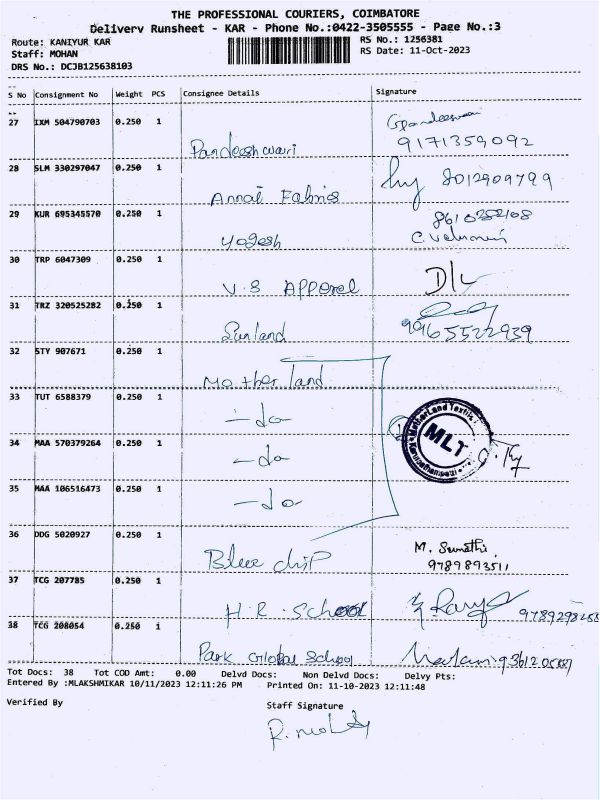 THE PROFESSIONAL COURIERS, COIMBATORE
Delivery Runsheet - KAR - Phone No.:0422-3505555 - Page No.:3
Route: KANIYUR KAR
RS No.: 1256381
Staff: MOHAN
RS Date: 11-Oct-2023
DRS No.: DCJB125638103
S No Consignment No Weight PCS Consignee Details Signature
27 IXM 504790703 0.250 1 Pandeeshwari
9171359092
28 SLM 330297047 0.250 1 Annai Fabrics 8012909799
29 KUR 695345570 0.250 1 Yogesh
30 TRP 6047309 0.250 1 V.S Apperel D/L
31 TRZ 320525282 0.250 1 Sunland 9965522939
32 STY 907671 0.250 1 Mother land
33 TUT 6588379 0.250 1 -do-
34 MAA 570379264 0.250 1 -do-
MLT
35 MAA 106516473 0.250 1 -do-
36 DDG 5020927 0.250 1 Blue chip M. Sumathi
9789893511
37 TCG 207785 0.250 1 H.R. School
38 TCG 208054 0.250 1 Park Global School
Tot Docs: 38 Tot COD Amt: 0.00 Delvd Docs: Non Delvd Docs: Delvy Pts:
Entered By :MLAKSHMIKAR 10/11/2023 12:11:26 PM Printed On: 11-10-2023 12:11:48
Verified By Staff Signature